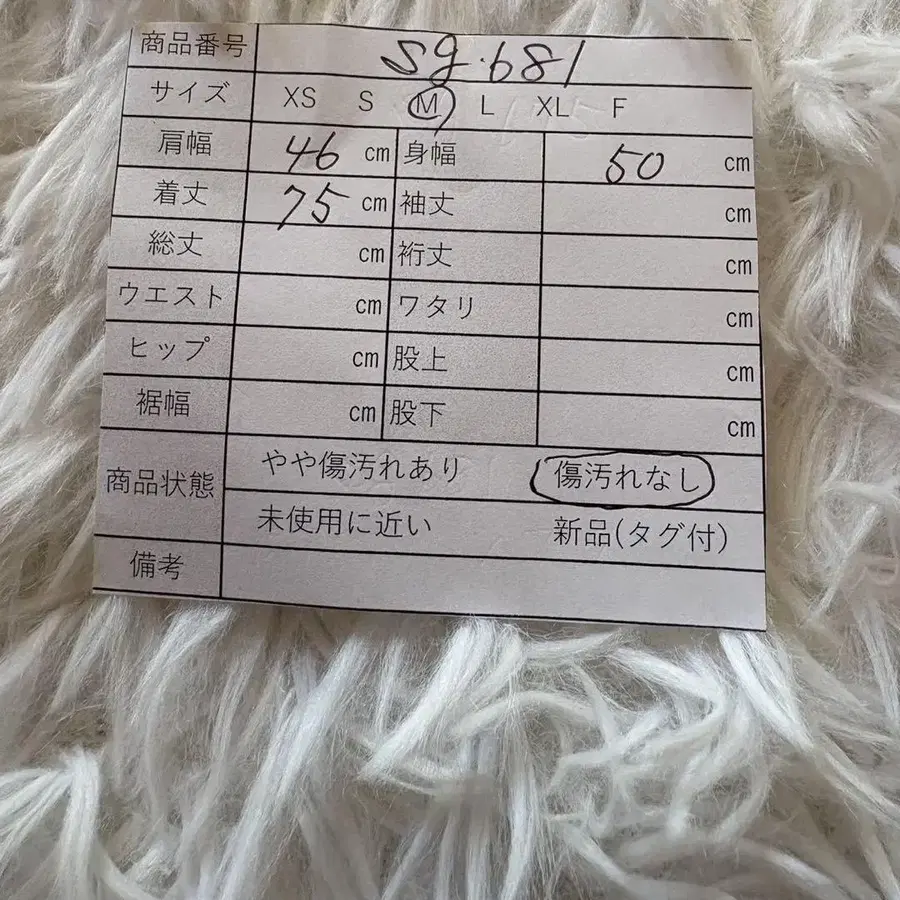 商品番号 sg.681
サイズ XS S M L XL F
肩幅 46 cm 身幅 50 cm
着丈 75 cm 袖丈 cm
総丈 cm 裄丈 cm
ウエスト cm ワタリ cm
ヒップ cm 股上 cm
裾幅 cm 股下 cm
商品状態 やや傷汚れあり 傷汚れなし
未使用に近い 新品(タグ付)
備考